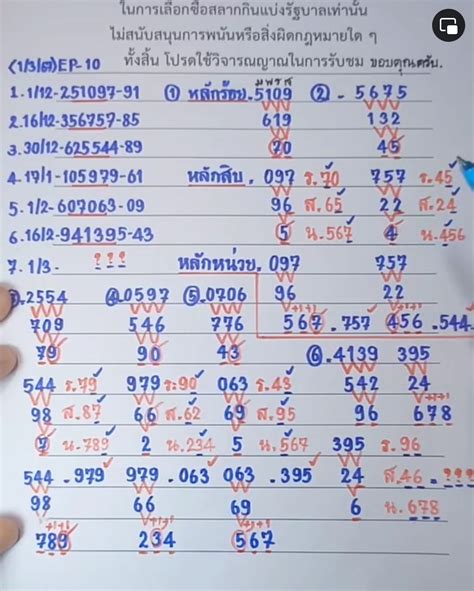 ในการเลือกซื้อสลากกินแบ่งรัฐบาลเท่านั้น
ไม่สนับสนุนการพนันหรือสิ่งผิดกฎหมายใด ๆ
ทั้งสิ้น โปรดใช้วิจารณญาณในการรับชม ขอบคุณครับ.
(1/3/๗)EP-10
1.1/12-251097-91 ① หลักร้อย.5109 ② - 5675
มพรศ
2.16/12-356757-85 619 132
3.30/12-625544-89 20 45
4.17/1-105979-61 หลักสิบ. 097 ร.70 757 ร.45
5.1/2-607063-09 96 ส.65 22 ส.24
6.16/2-941395-43 5 น.567 4 น.456
7.1/3- ??? หลักหน่วย. 097 757
.2554 ④.0597 ⑤.0706 96 22
709 546 776 567.757 456.544
79 90 43 ⑥.4139 395
544 ร.79 979 ร.90 063 ร.43 542 24
98 ส.87 66 ส.62 69 ส.95 96 678
7 น.789 2 น.234 5 น.567 395 ร.96
544.979 979.063 063.395 24 ส.46.???
98 66 69 6 น.678
789 234 567